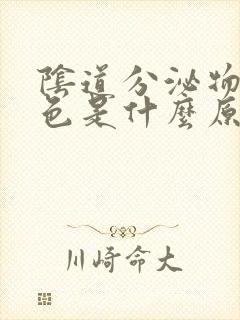 陰道分泌物
色是什麼原
川崎命大